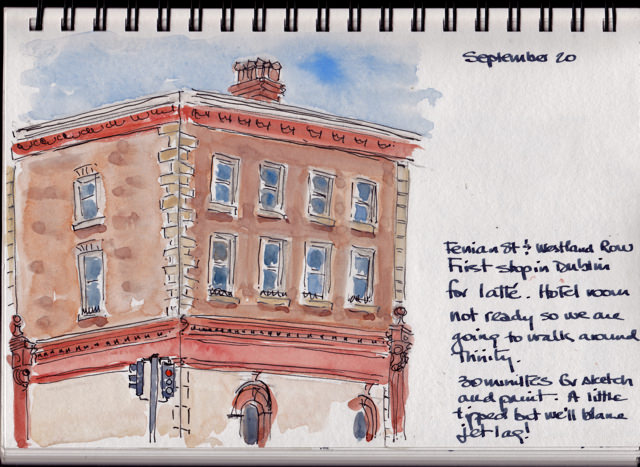 September 20
Fenian St & Westland Row
First stop in Dublin
for latté. Hotel room
not ready so we are
going to walk around
Trinity.
30 minutes for sketch
and paint. A little
tipped but we'll blame
jet lag!